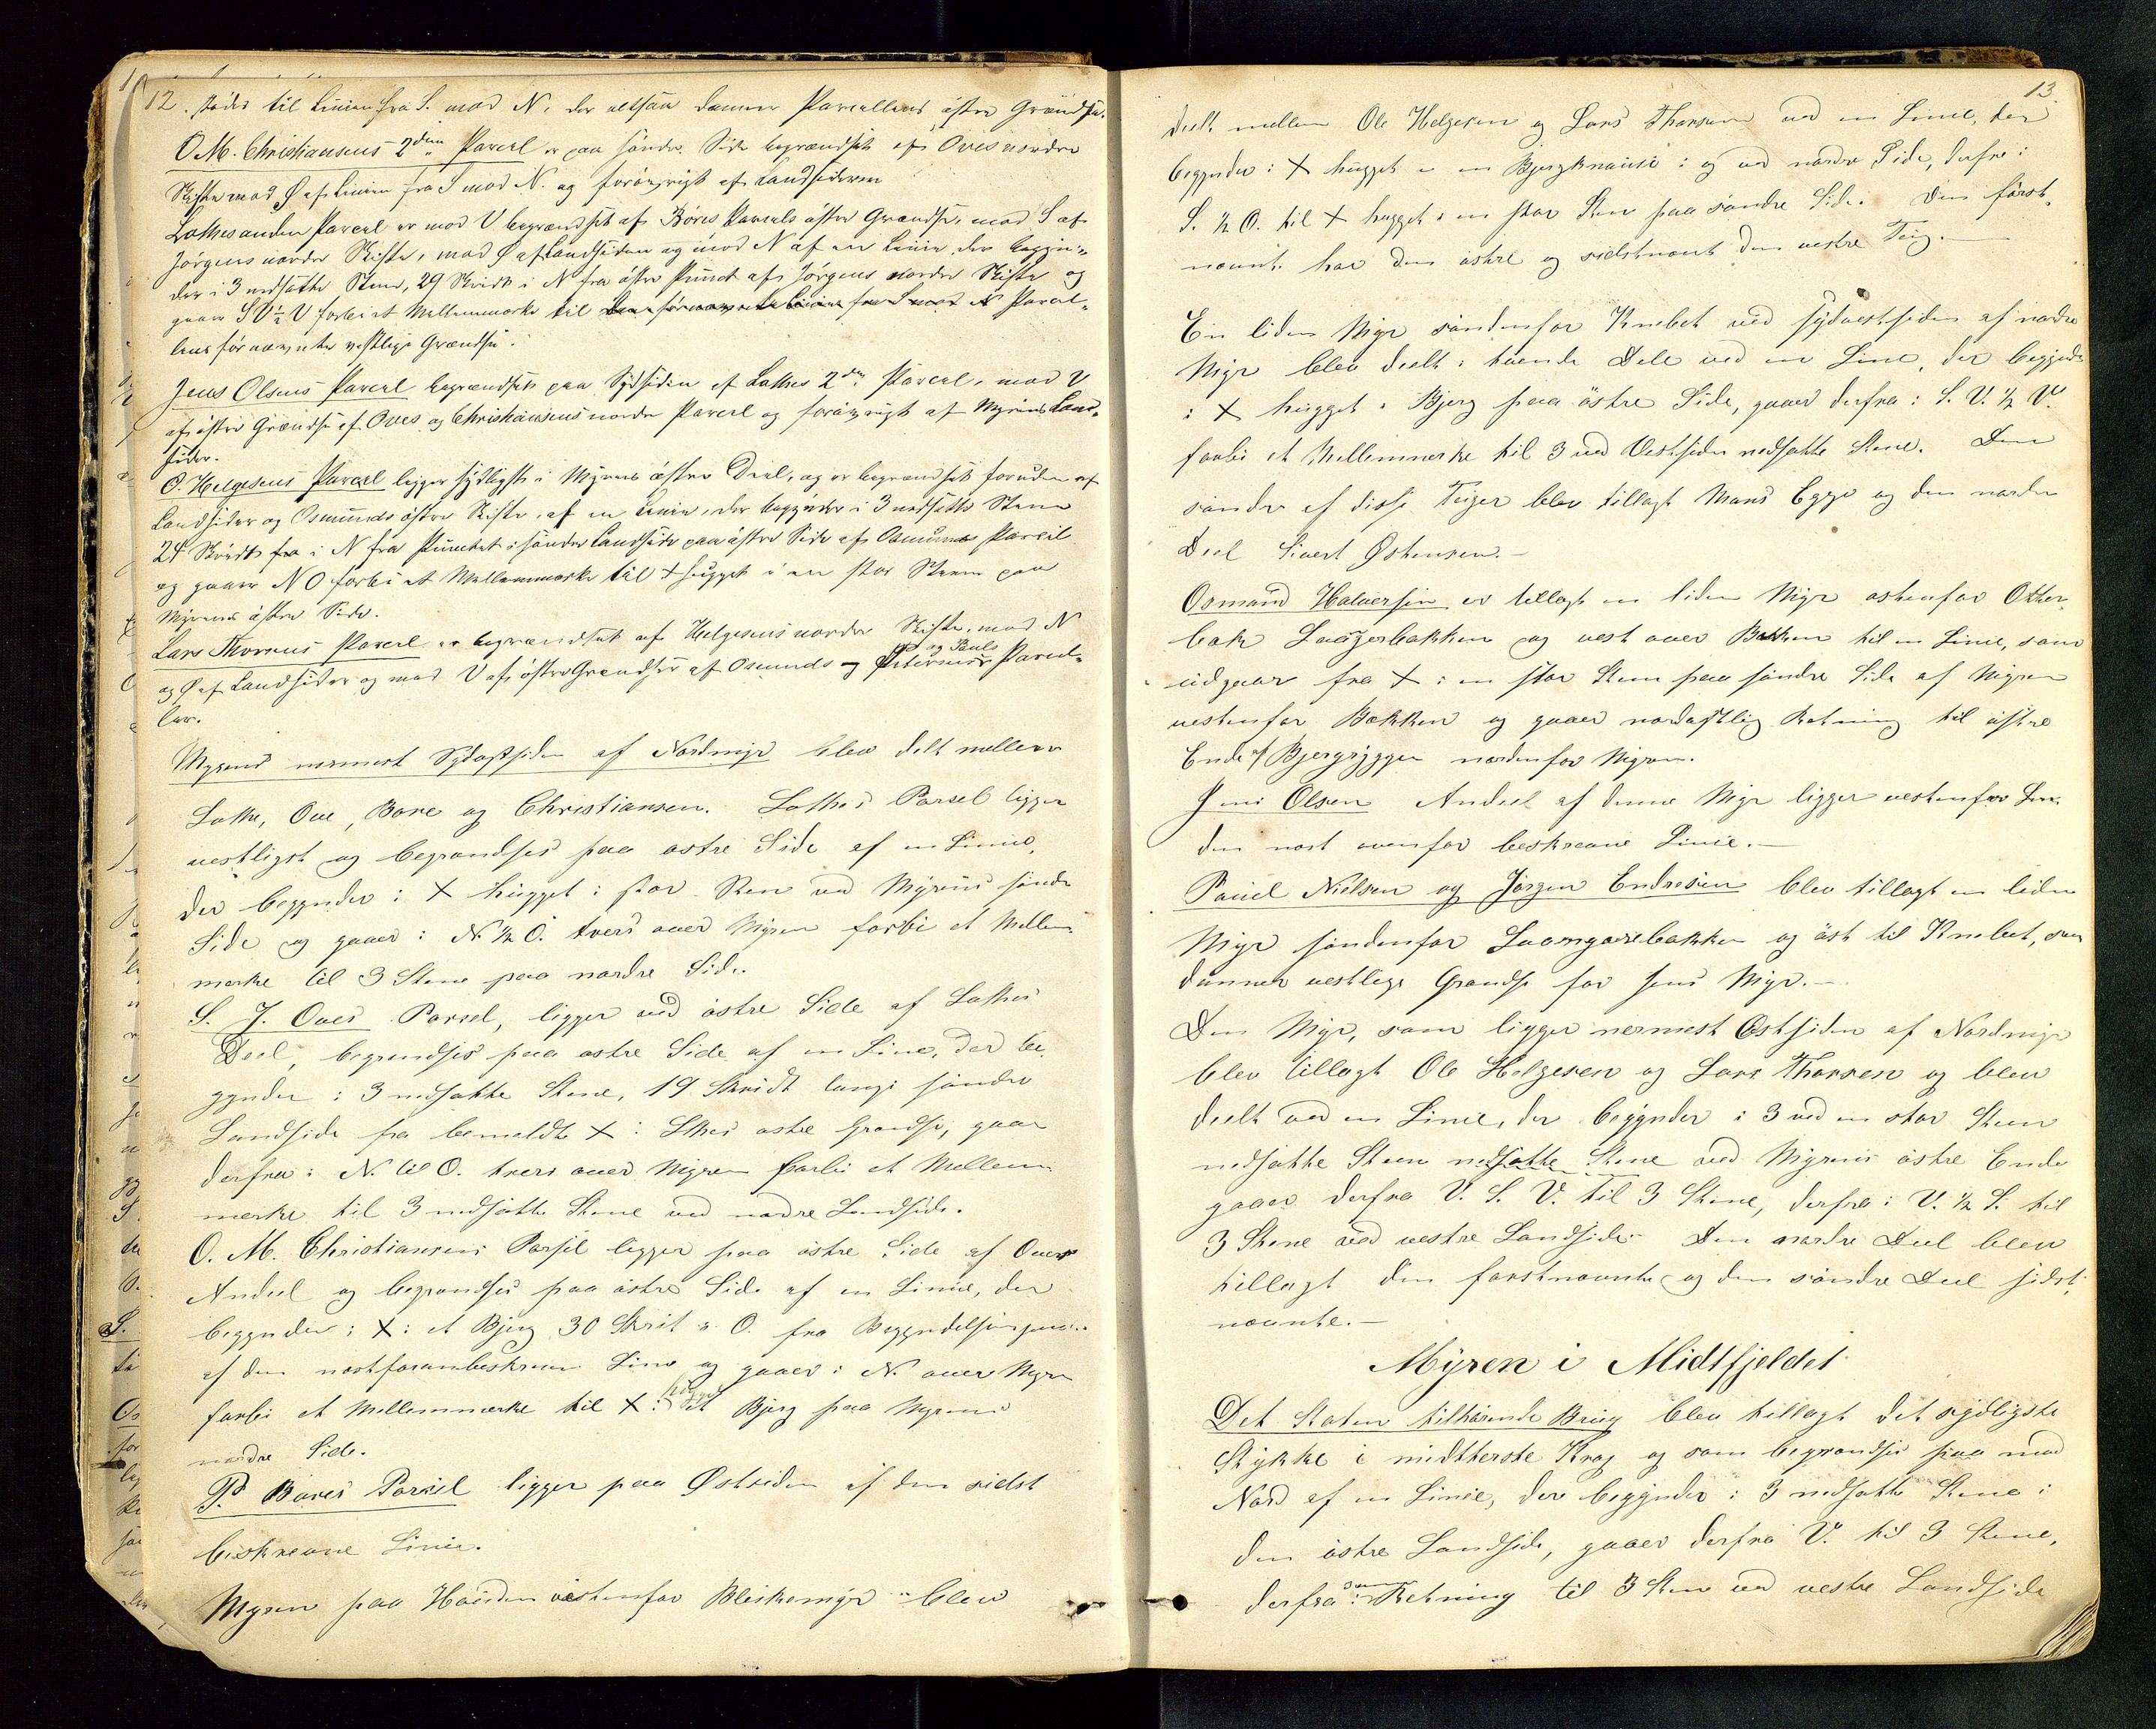 12. støder til Linien fra S. mod N. der altsaa danner Parcellens østre Grændse.
O. M. Christiansens 2den Parcel er paa søndre Side begrændset af Oves nordre
Skifte mod Ø af Linien fra S mod N. og forøvrigt af Landsiderne
Lothes anden Parcel er mod V begrændset af Bóres Parcels østre Grændse, mod S af
Jörgens nordre Skifte, mod Ø af Landsiden og mod N af en Linie, der begyn-
der i 3 nedsatte Stene, 29 Skridt i N fra østre Punct af Jörgens nordre Skifte og
gaaer S V ½ V forbi et Mellemmerke til Parcel-
lens förnævnte vestlige Grændse.
Jens Olsens Parcel begrændses paa Sydsiden af Lothes 2den Parcel, mod V
af östre Grændse af Oves og Christiansens nordre Parcel og forövrigt af Myrens Land-
sider.
O. Helgesens Parcel ligger sydligst i Myrens østre Deel, og er begrændset foruden af
Landsider og Osmunds östre Skifte, af en Linie, der begynder i 3 nedsatte Stene
24 Skridt fra i N fra Punctet i söndre Landside paa östre Side af Osmunds Parcel
og gaaer NO forbi et Mellemmerke til + hugget i en stor Steen paa
Myrens östre Side.
Lars Thorsens Parcel er begrændset af Helgesens nordre Skifte, mod N
og Ø af Landsider og mod V af östre Grændser af Osmunds og Petersens og Pauls Parcel-
ler.
Myrens nermest Sydostsiden af Nordmyr blev delt mellem
Lothe, Ove, Bore og Christiansen. Lothes Parsel ligger
vestligst og begrændses paa østre Side af en Linie,
der begynder i + hugget i stor Sten ved Myrens søndre
Side og gaaer i N. ½ O. tvers over Myren forbi et Mellem-
merke til 3 Stene paa nordre Side.
S. J. Oves Parsel, ligger ved østre Side af Lothes
Deel, begrendses paa østre Side af en Linie, der be-
gynder i 3 nedsatte Stene, 19 Skridt langs søndre
Landside fra bemeldte + i Lothes østre Grændse, gaaer
derfra i N. til O. tvers over Myren forbi et Mellem-
merke til 3 nedsatte Stene ved nordre Landside.
O. M. Christiansens Parsel ligger paa østre Side af Oves
Andeel og begrændses paa østre Side af en Linie, der
begynder i + i et Bjerg 30 Skrit i O. fra Begyndelsespunct
af den næstforanbeskrevne Linie og gaaer i N. over Myren
forbi et Mellemmerke til + i hugget et Bjerg paa Myrens
nordre Side.
P. Bores Parsel ligger paa Østsiden af den sidst
beskrevne Linie.
Myren paa Høiden vestenfor Bleikemyr blev
13
deelt mellem Ole Helgesen og Lars Thorsen ved en Linie, der
begynder i + hugget i en Bjergknause i og ved nordre Side, derfra i
S. ½ O. til + hugget i en stor Sten paa søndre Side. Den først-
nævnte har den østre og sidstnævnte den vestre Teig.
En liden Myr søndenfor Knebet ved sydvestsiden af nordre
Myr blev deelt i tvende Dele ved en Linie, der begynder
i + hugget i Bjerg paa østre Side, gaaer derfra i S. V. ½ V.
forbi et Mellemmerke til 3 ved Vestsiden nedsatte Stene. Den
søndre af disse Teiger blev tillagt Mons Egge og den nordre
Deel Sivert Østensen.
Osmund Halversen er tillagt en liden Myr østenfor Otter-
bæk Laagerbakken og vest over Bækken til en Linie, som
udgaar fra + i en stor Steen paa søndre Side af Myren
vestenfor Bækken og gaaer nordøstlig Retning til østre
Ende af Bjergryggen nordenfor Myren.
Jens Olsen Andeel af denne Myr ligger vestenfor
den næst ovenfor beskrevne Linie.
Pouel Nielsen og Jørgen Endresen blev tillagt en liden
Myr søndenfor Laangerebakken og øst til Knebet, som
danner vestlige Grændse for Jens Myr.
Den Myr, som ligger nermest Østsiden af Nordmyr
blev tillagt Ole Helgesen og Lars Thorsen og blev
deelt ved en Linie, der begynder i 3 ved en stor Steen
nedsatte Steen nedsatte Stene ved Myrens østre Ende
gaaer derfra V. S. V. til 3 Stene, derfra i V. ½ S. til
3 Stene ved vestre Landside. Den nordre Deel blev
tillagt den førstnævnte og den søndre Deel sidst-
nævnte.
Myren i Midtfjeldet
Det Staten tilhørende Brug blev tillagt det sydligste
Stykke i midtterste Krog og som begrændses paa mod
Nord af en Linie, der begynder i 3 nedsatte Stene i
den østre Landside, gaaer derfra V. til 3 Stene,
derfra i samme Retning til 3 Stene ved vestre Landside